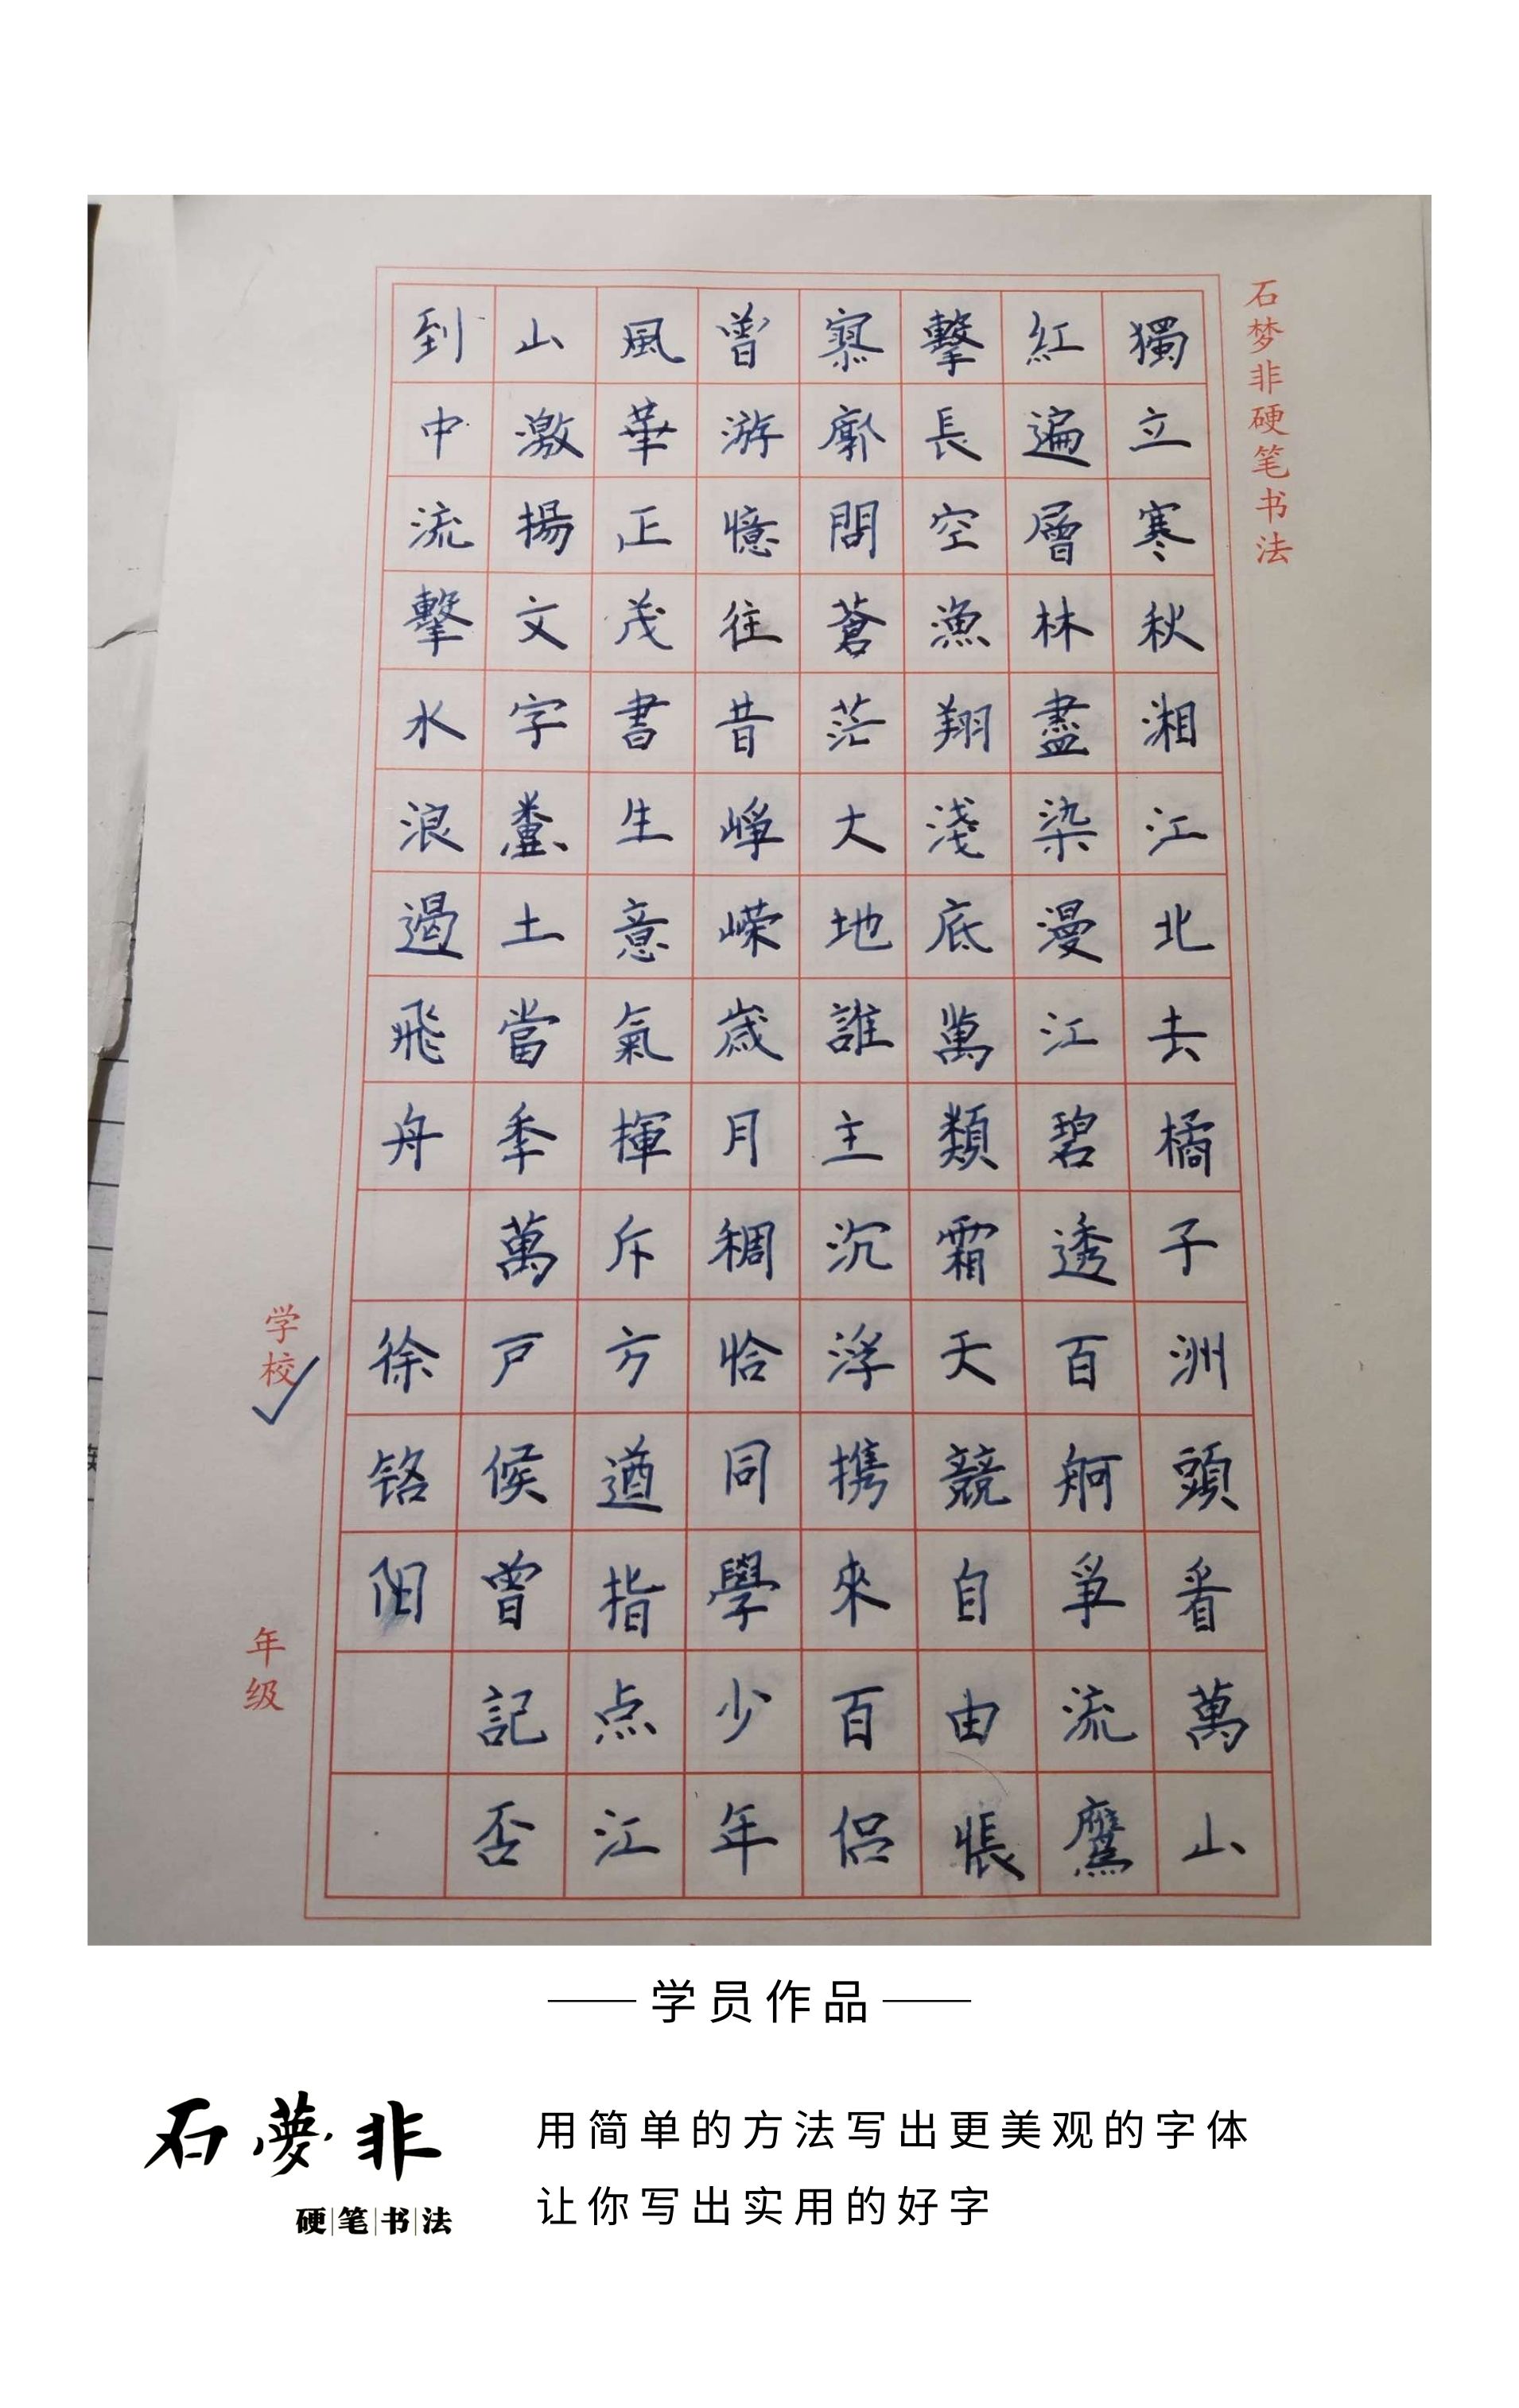 石梦非硬笔书法
獨立寒秋湘江北去橘子洲頭看萬山
紅遍層林盡染漫江碧透百舸爭流鷹
擊長空漁翔淺底萬類霜天競自由悵
寥廓問蒼茫大地誰主沉浮携來百侣
曾游憶往昔崢嶸歲月稠恰同學少年
風華正茂書生意氣揮斥方遒指点江
山激揚文字糞土當年萬户侯曾記否
到中流擊水浪遏飛舟 徐铭阳
学校
年级
学员作品
石夢非
硬笔书法
用简单的方法写出更美观的字体
让你写出实用的好字